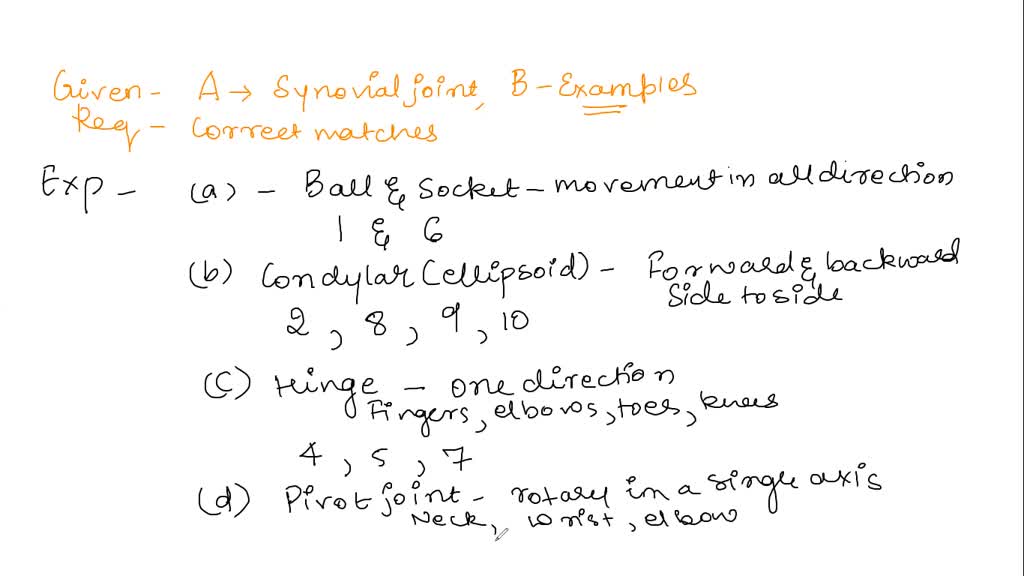 Given - A → Synovial joint, B - Examples
Req - Correct matches
Exp - (a) - Ball & Socket - movement in all direction
1 & 6
(b) Condylar (ellipsoid) - Forward & backward
Side to side
2, 8, 9, 10
(C) Hinge - one direction
Fingers, elbows, toes, knees
4, 5, 7
(d) Pivot joint - rotary in a single axis
Neck, wrist, elbow